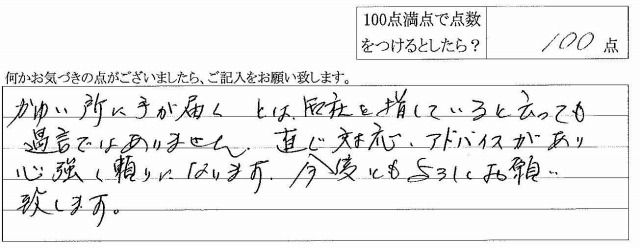 100点満点で点数
をつけるとしたら？
100 点
何かお気づきの点がございましたら、ご記入をお願い致します。
かゆい所に手が届く とは、 を指していると言っても
過言ではありません。直ぐ対応、アドバイスがあり
心強く頼りになります。今後ともよろしくお願い
致します。